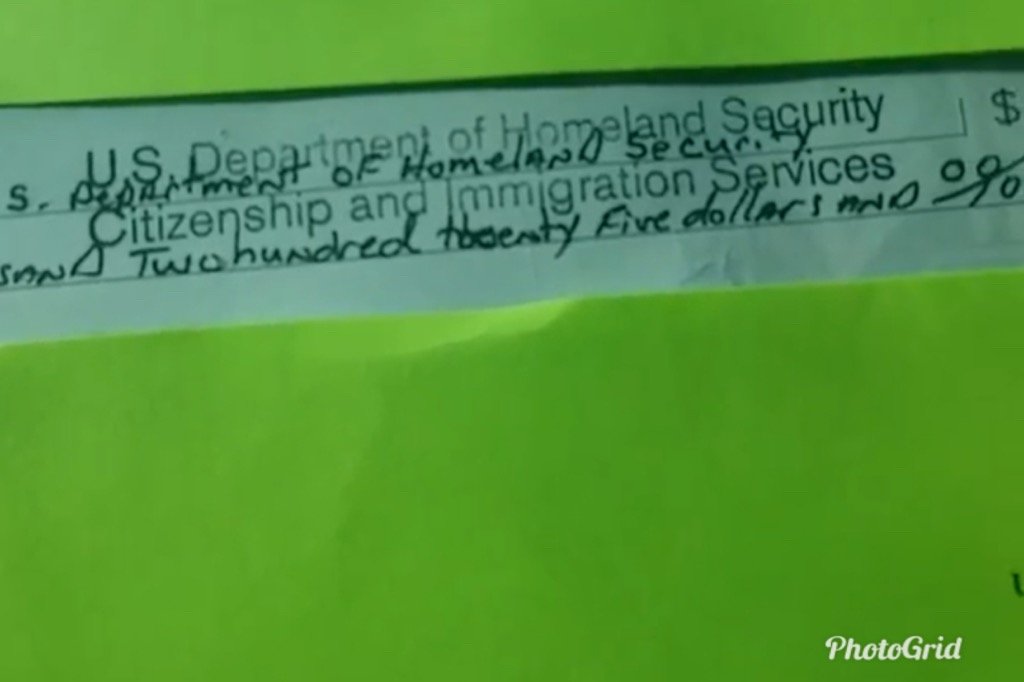 U.S. Department of Homeland Security $
S. Department OF HomelAND Security
Citizenship and Immigration Services
SAND Two hundred twenty Five dollars AND 00/0
PhotoGrid